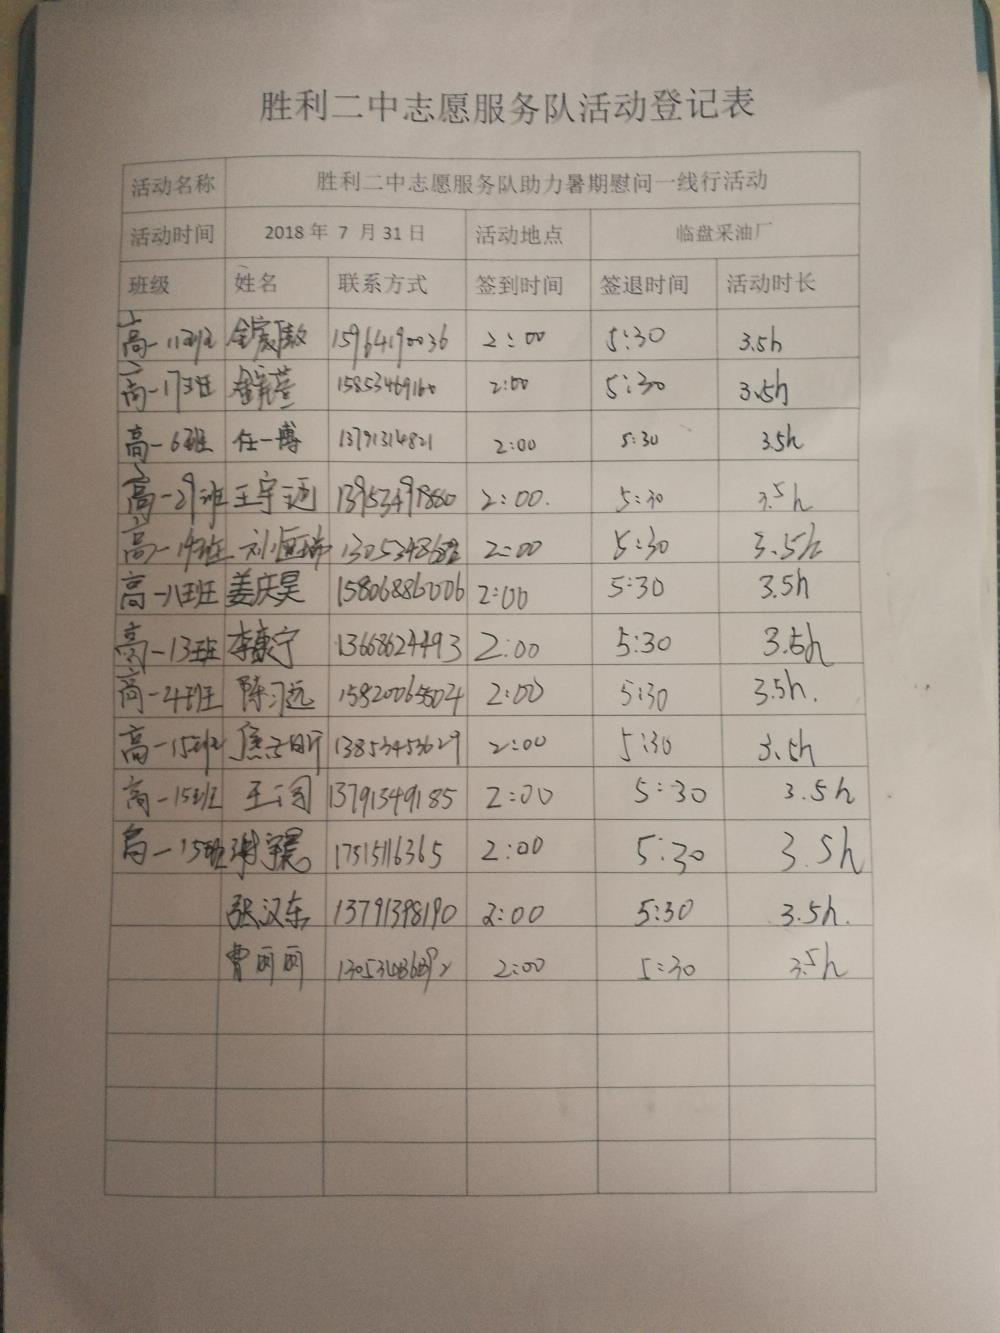 胜利二中志愿服务队活动登记表
活动名称 胜利二中志愿服务队助力暑期慰问一线行活动
活动时间 2018 年 7 月 31 日 活动地点 临盘采油厂
班级 姓名 联系方式 签到时间 签退时间 活动时长
高一11班 15964190036 2:00 5:30 3.5h
高一17班 15853469160 2:00 5:30 3.5h
高一6班 任一博 13791314821 2:00 5:30 3.5h
高一29班 王宇迈 2:00. 5:30 3.5h
高一19班 刘恒瑞 2:00 5:30 3.5h
高一八班 姜庆昊 15806886006 2:00 5:30 3.5h
高一13班 李康宁 13668624493 2:00 5:30 3.5h
高一4班 陈习远 2:00 5:30 3.5h.
高一15班 13853453629 2:00 5:30 3.5h
高一15班 13791349185 2:00 5:30 3.5h
高一15班 谢宇晨 17515116365 2:00 5:30 3.5h
张汉东 13791398190 2:00 5:30 3.5h.
曹丽丽 2:00 5:30 3.5h